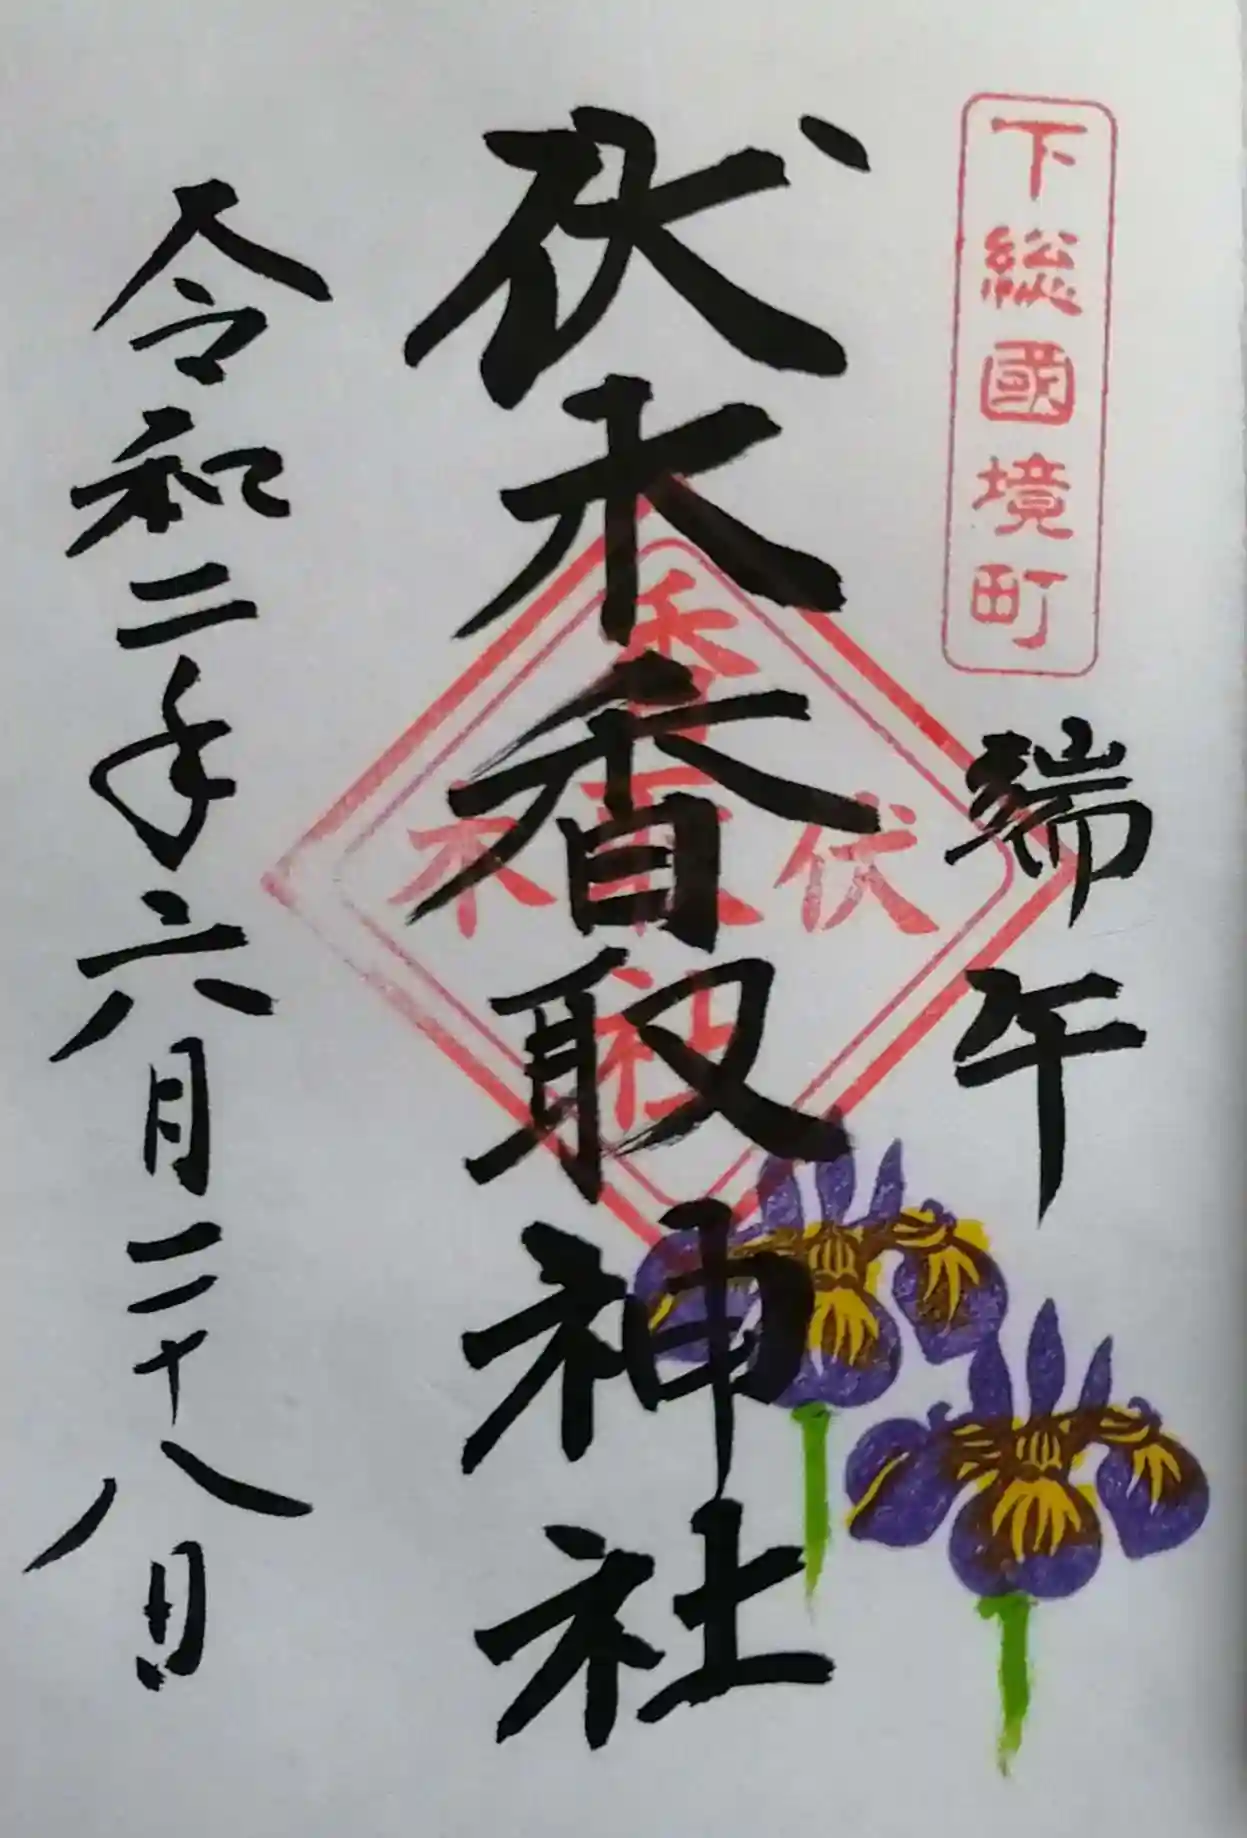 下総國境町
端午
伏木香取神社
香取
伏
木
社
令和二年六月二十八日